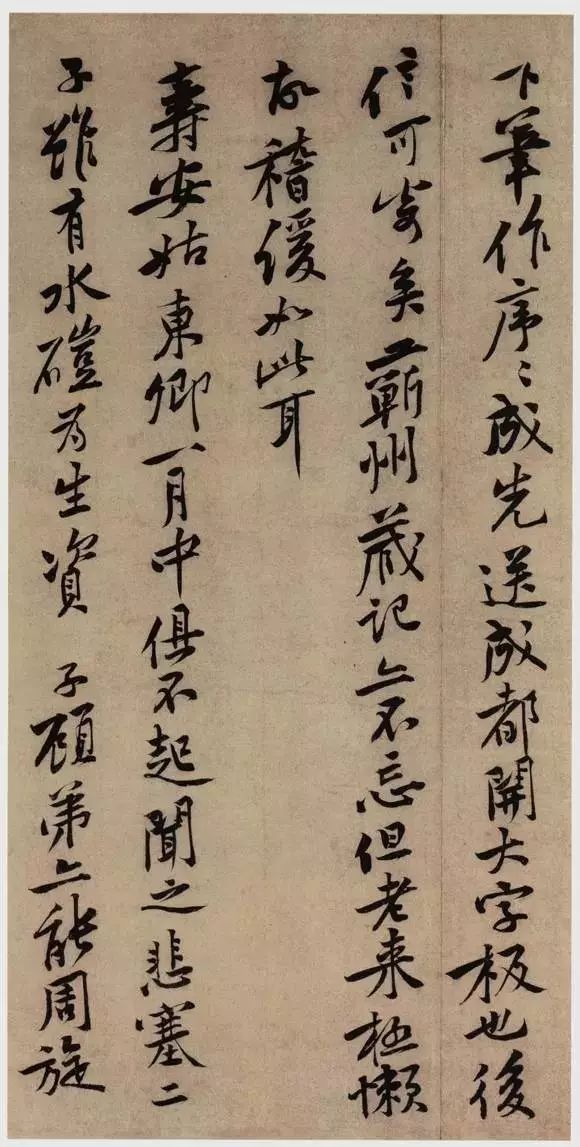 下筆作序〻成先送成都開大字板也後
信可寄矣王蘄州蔵記亦不忘但老来極懶
故稽緩如此耳
壽安姑東卿一月中俱不起聞之悲塞二
子雖有水磑為生資 子顧弟亦能周旋